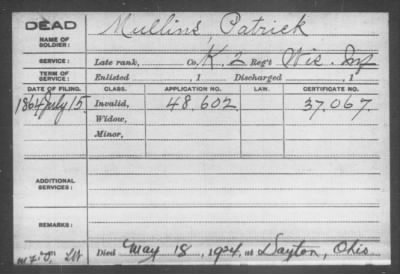 DEAD
NAME OF SOLDIER: Mullins, Patrick
SERVICE: Late rank, Co. K. 2 Reg't Wis. Inf
TERM OF SERVICE: Enlisted , 1 Discharged , 1
DATE OF FILING. CLASS. APPLICATION NO. LAW. CERTIFICATE NO.
1864 July 15 Invalid, 48.602 37.067.
Widow,
Minor,
ADDITIONAL SERVICES:
REMARKS:
Died May 18, 1924, at Dayton, Ohio.